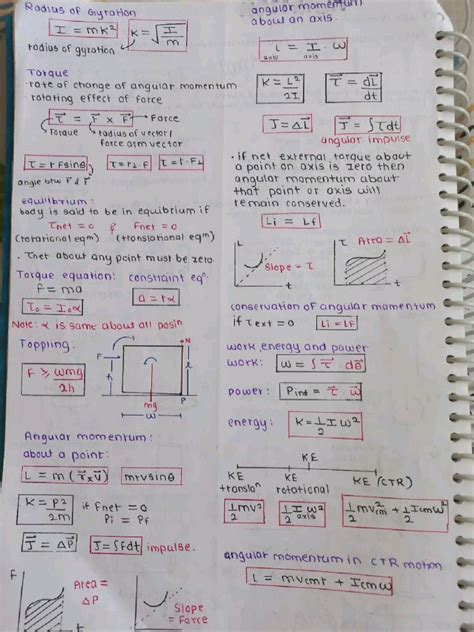 Radius of Gyration
I = mK² K = √I/m
radius of gyration
Torque
· rate of change of angular momentum
· rotating effect of force
τ⃗ = r⃗ × F⃗ → Force
Torque radius of vector/
force arm vector
τ = rFsinθ τ = r⊥·F τ = r·F⊥
angle b/w r⃗ & F⃗
equilibrium:
body is said to be in equibrium if
τnet = 0 & Fnet = 0
(rotational eqᵐ) (translational eqᵐ)
· τnet about any point must be zero.
Torque equation: constraint eqⁿ:
F = ma
τ₀ = I₀α a = rα
Note: α is same about all posiⁿ
Toppling.
F ≥ wmg/2h
F
N
mg
P
w
Angular momentum:
about a point:
L = m(r⃗×v⃗) mrvsinθ
K = P²/2m if Fnet = 0
Pi = Pf
J⃗ = ΔP⃗ J = ∫Fdt impulse.
F
Area =
ΔP
Slope
= Force
angular momentum
about an axis.
L axis = I axis · ω
K = L²/2I τ⃗ = dL⃗/dt
J = ΔL⃗ J⃗ = ∫τdt
angular impulse
· if net external torque about
a point on axis is zero then
angular momentum about
that point or axis will
remain conserved.
Li = Lf
L
Slope = τ
t
τ Area = ΔL
t
conservation of angular momentum
if τext = 0 Li = LF
work, energy and power
work: w = ∫τ⃗·dθ⃗
power: Pinst = τ⃗·ω⃗
energy: K = 1/2 Iω²
KE KE KE (CTR)
translaⁿ rotational
1/2 mv² 1/2 I axis ω² 1/2 mv²cm + 1/2 Icmω²
angular momentum in CTR motion
L = mvcmr + Icmω